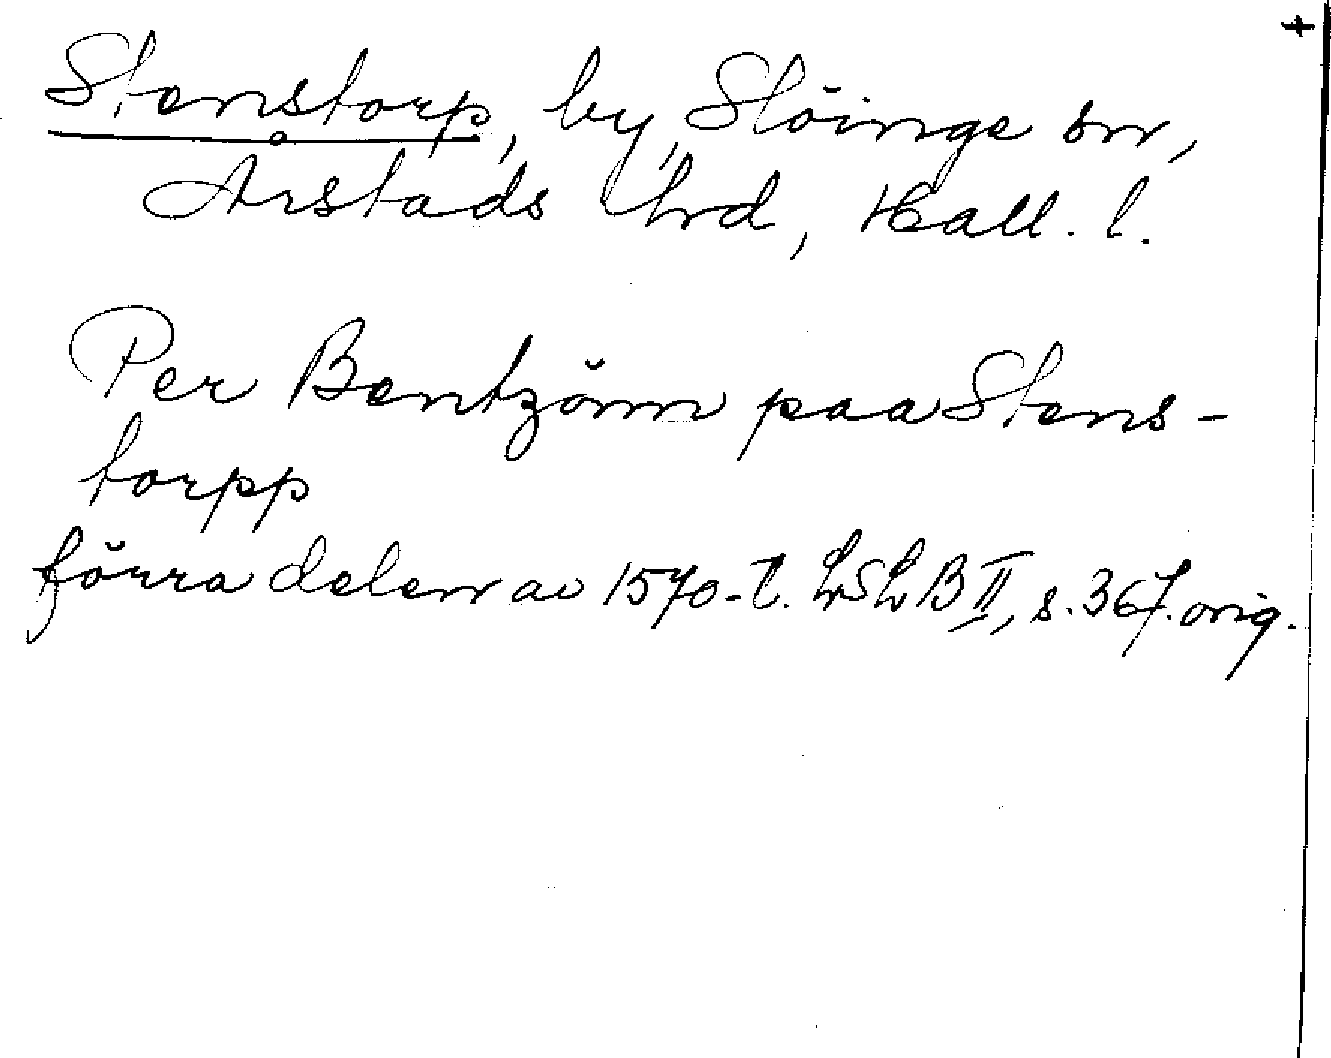 +
Stenstorp, by, Slöinge sn,
Årstads hrd, Hall. l.
Per Bentzönn paa Stens-
torpp
förra delen av 1570-t. LSLB II, s. 367. orig.